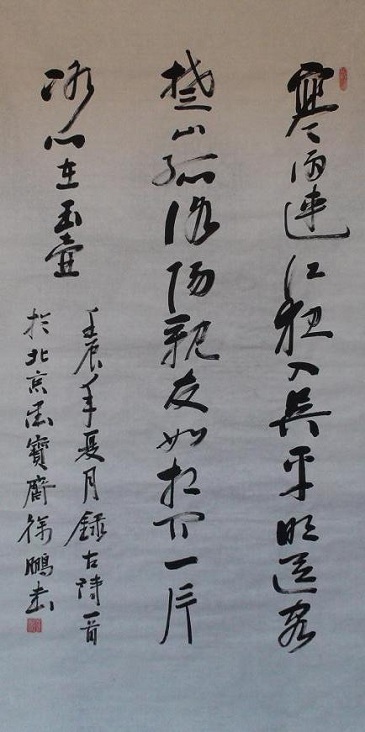 寒雨連江夜入吳平明送客
楚山孤洛陽親友如相問一片
冰心在玉壺
壬辰年夏月錄古詩一首
於北京墨寶齋徐鵬書